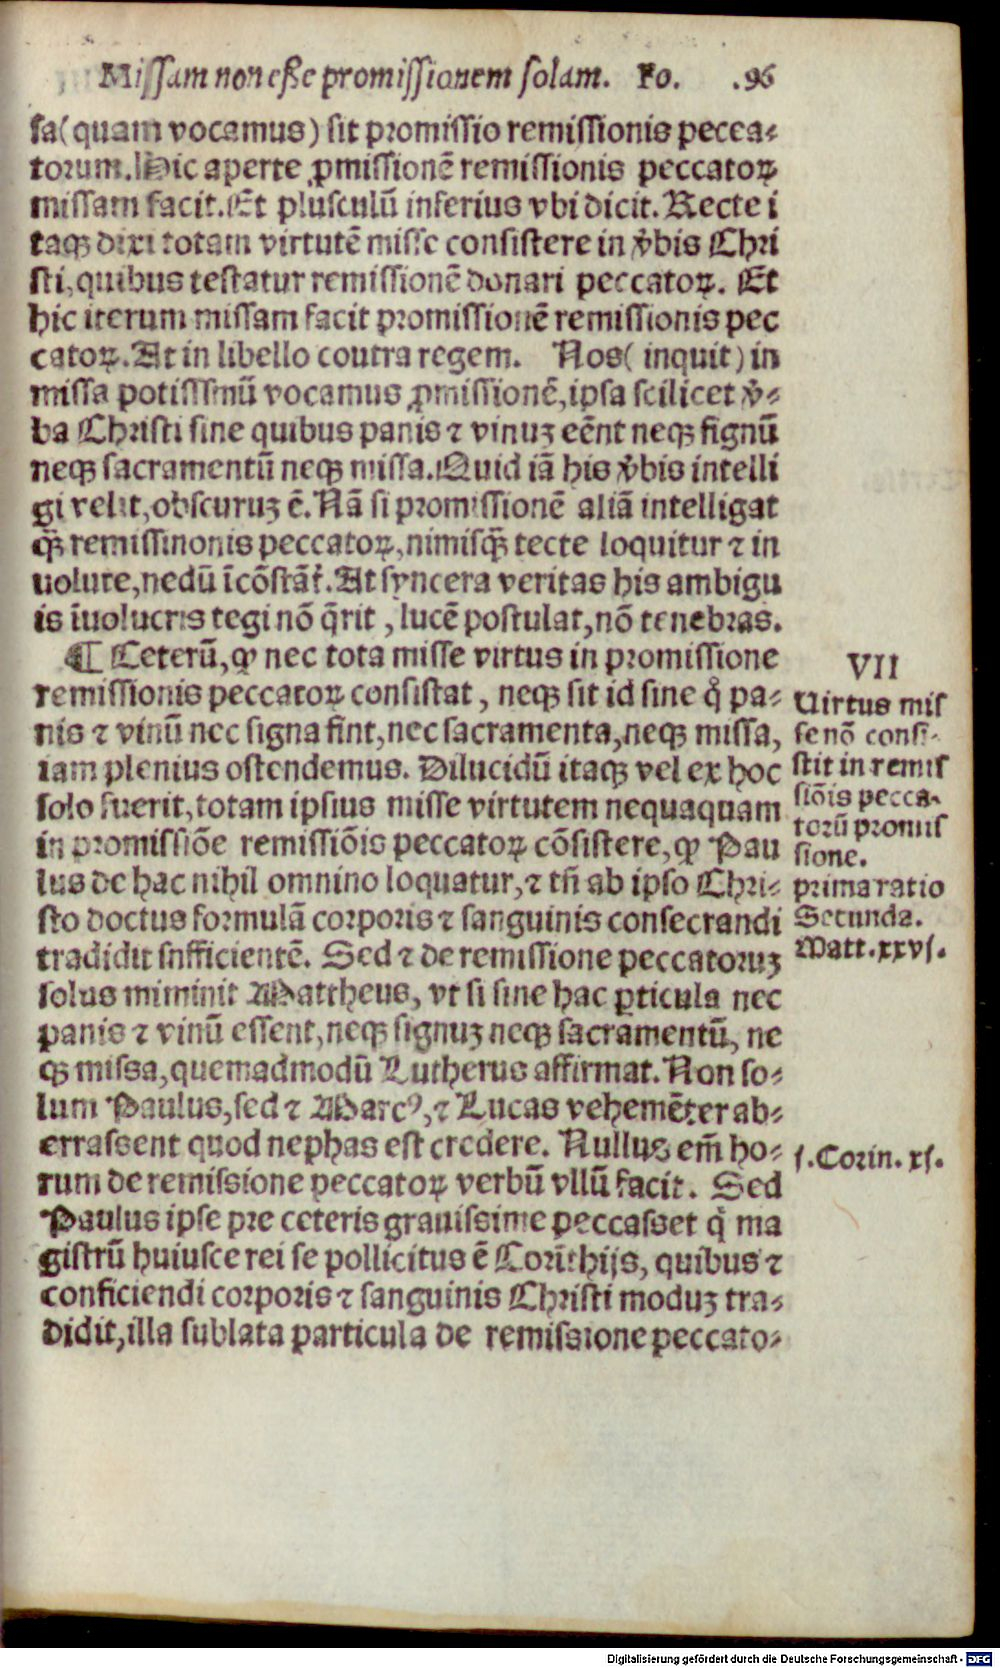 Missam non eße promissionem solam. Fo. .96
sa(quam vocamus) sit promissio remissionis peccea-
torum. Hic aperte ꝓmissionē remissionis peccatoꝝ
missam facit. Et plusculū inferius vbi dicit. Recte i
taqꝫ dixi totam virtutē misse consistere in v̄bis Chri
sti, quibus testatur remissionē donari peccatoꝝ. Et
hic iterum missam facit promissionē remissionis pec
catoꝝ. At in libello coutra regem. Nos( inquit ) in
missa potissimū vocamus ꝓmissionē, ipsa scilicet v̄-
ba Christi sine quibus panis ⁊ vinuꝫ eēnt neqꝫ signū
neqꝫ sacramentū neqꝫ missa. Quid iā his v̄bis intelli
gi velit, obscuruꝫ ē. Nā si promissionē aliā intelligat
qꝫ̄ remissinonis peccatoꝝ, nimisqꝫ̄ tecte loquitur ⁊ in
uolute, nedū īcōstāt̄. At syncera veritas his ambigu
is īuolucris tegi nō q̄rit , lucē postulat, nō tenebras.
¶ Ceterū, ꝙ nec tota misse virtus in promissione
remissionis peccatoꝝ consistat , neqꝫ sit id sine q̊ pa-
nis ⁊ vinū nec signa sint, nec sacramenta, neqꝫ missa,
iam plenius ostendemus. Dilucidū itaqꝫ vel ex hoc
solo fuerit, totam ipsius misse virtutem nequaquam
in promissiōe remissiōis peccatoꝝ cōsistere, ꝙ Pau
lus de hac nihil omnino loquatur, ⁊ tn̄ ab ipso Chri-
sto doctus formulā corporis ⁊ sanguinis consecrandi
tradidit snfficientē. Sed ⁊ de remissione peccatoruꝫ
solus miminit Mattheus, vt si sine hac ꝑticula nec
panis ⁊ vinū essent, neqꝫ signuꝫ neqꝫ sacramentū, ne
qꝫ missa, quemadmodū Lutherus affirmat. Non so-
lum Paulus, sed ⁊ Marcꝰ, ⁊ Lucas vehemēter ab-
errassent quod nephas est credere. Nullus em̄ ho-
rum de remissione peccatoꝝ verbū vllū facit. Sed
Paulus ipse pre ceteris grauissime peccasset q̇ ma
gistrū huiusce rei se pollicitus ē Corīthijs, quibus ⁊
conficiendi corporis ⁊ sanguinis Christi moduꝫ tra-
didit, illa sublata particula de remissione peccato-
VII
Uirtus mis
se nō consi-
stit in remis
siōis pecca-
torū promis
sione.
prima ratio
Secunda.
Matt. xxvj.
j. Corin. xj.
Digitalisierung gefördert durch die Deutsche Forschungsgemeinschaft - DFG